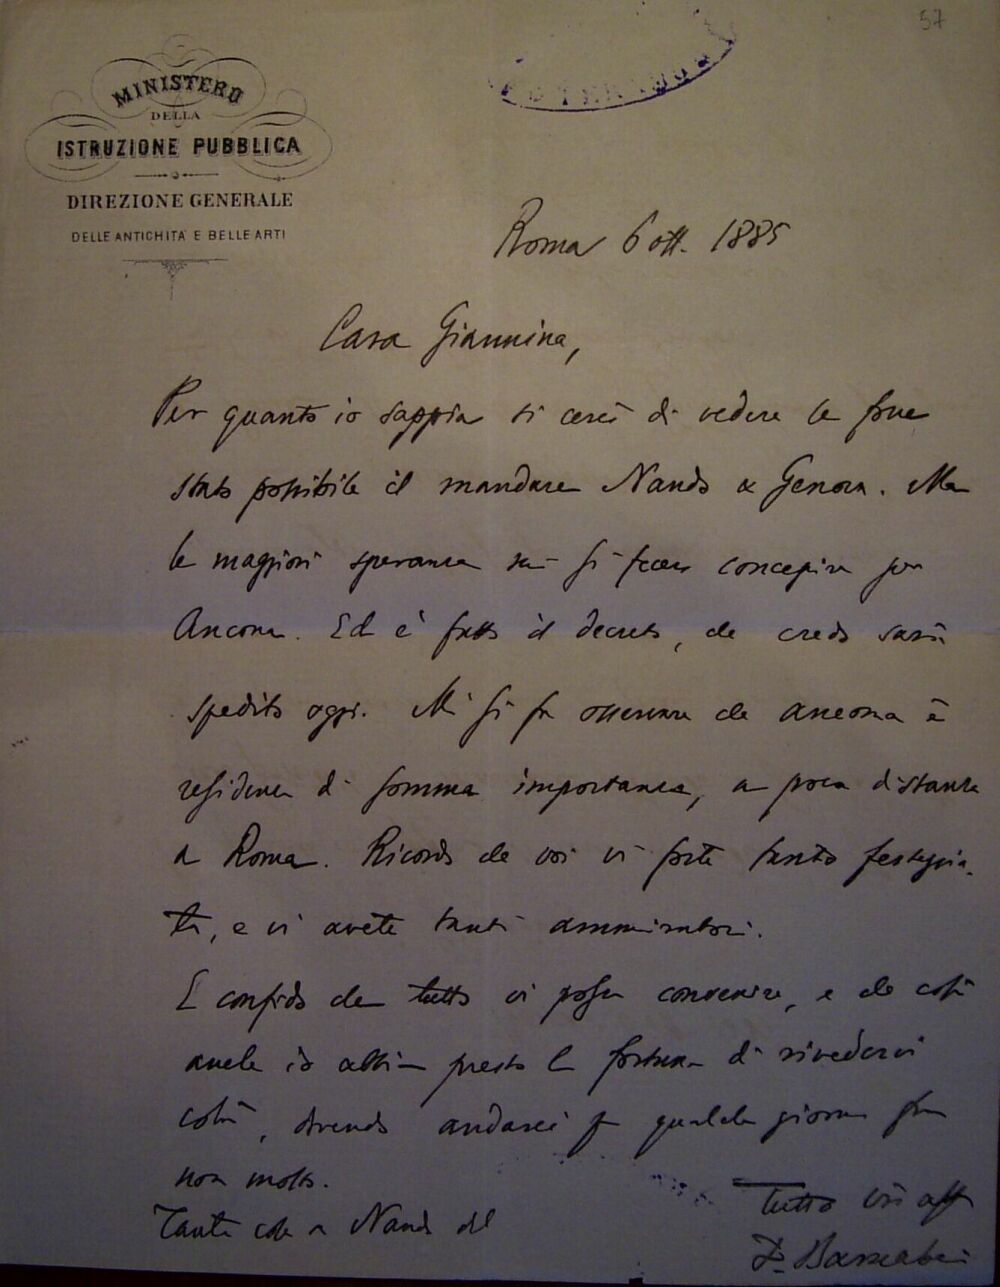 57
MINISTERO
DELLA
ISTRUZIONE PUBBLICA
DIREZIONE GENERALE
DELLE ANTICHITA' E BELLE ARTI
Roma 6 ott. 1885
Cara Giannina,
Per quanto io sappia si cercò di vedere se fosse
stato possibile il mandare Nando a Genova. Ma
le maggiori speranze mi si fecero concepire per
Ancona. Ed è fatto il decreto, che credo sarà
spedito oggi. Mi si fa osservare che Ancona è
residenza di somma importanza, a poca distanza
a Roma. Ricordo che voi vi foste tanto festeggia-
ta, e vi avete tanti ammiratori.
E confido che tutto vi possa convenire, e che così
anche io abbia presto la fortuna di rivedervi
colà, dovendo andarci per qualche giorno fra
non molto.
Tante cose a Nando dal
Tutto vro aff
F. Barnabei